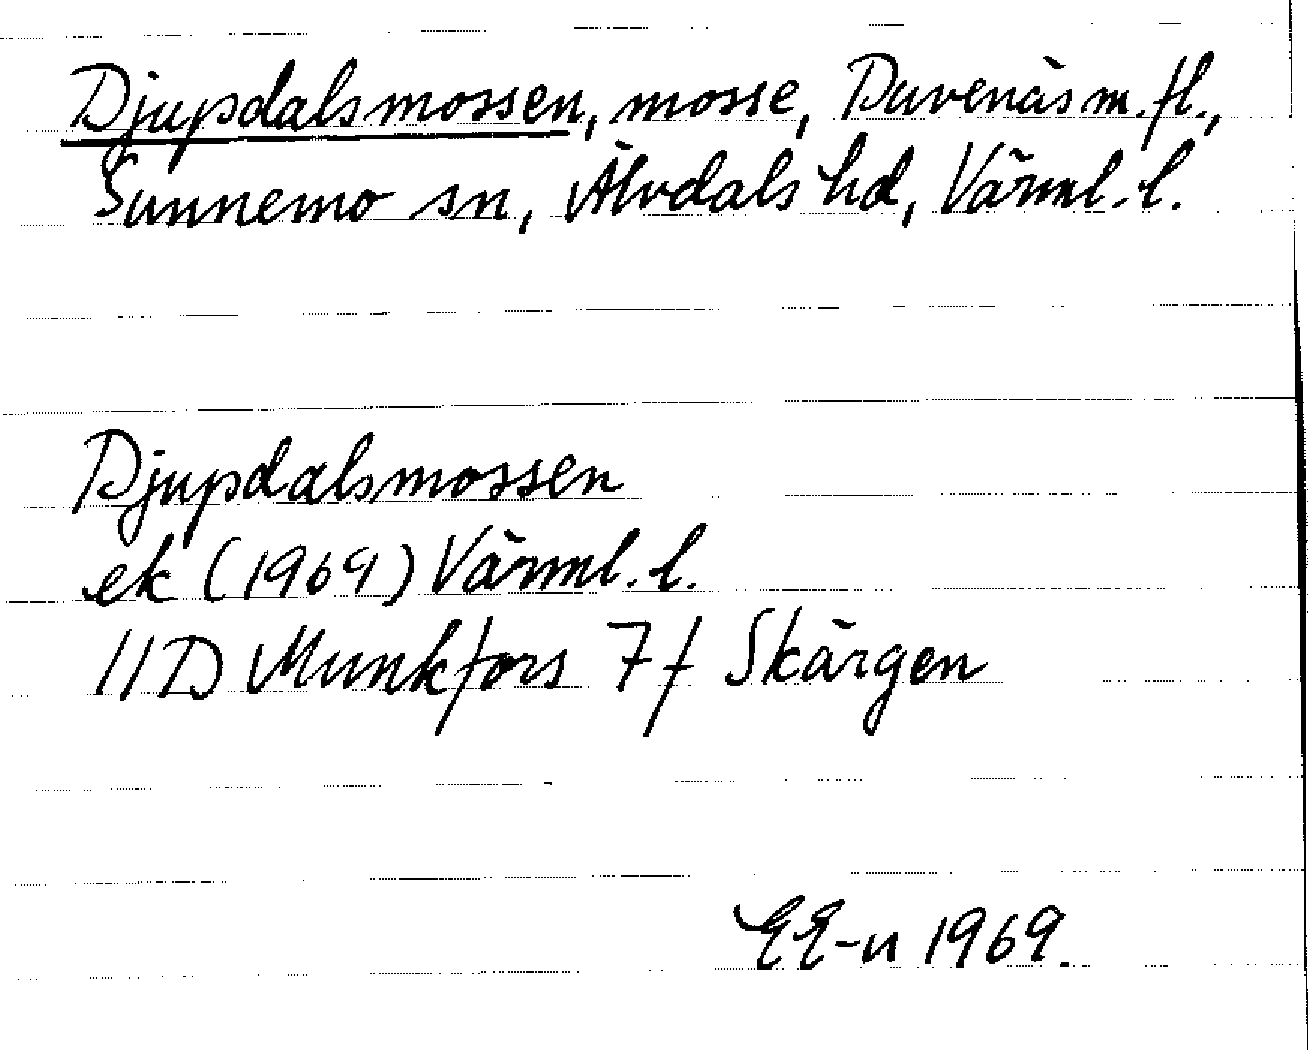 Djupdalsmossen, mosse, Duvenäs m. fl.,
Sunnemo sn, Älvdals hd, Värml. l.
Djupdalsmossen
ek (1969) Värml. l.
11D Munkfors 7f Skärgen
EE-n 1969.